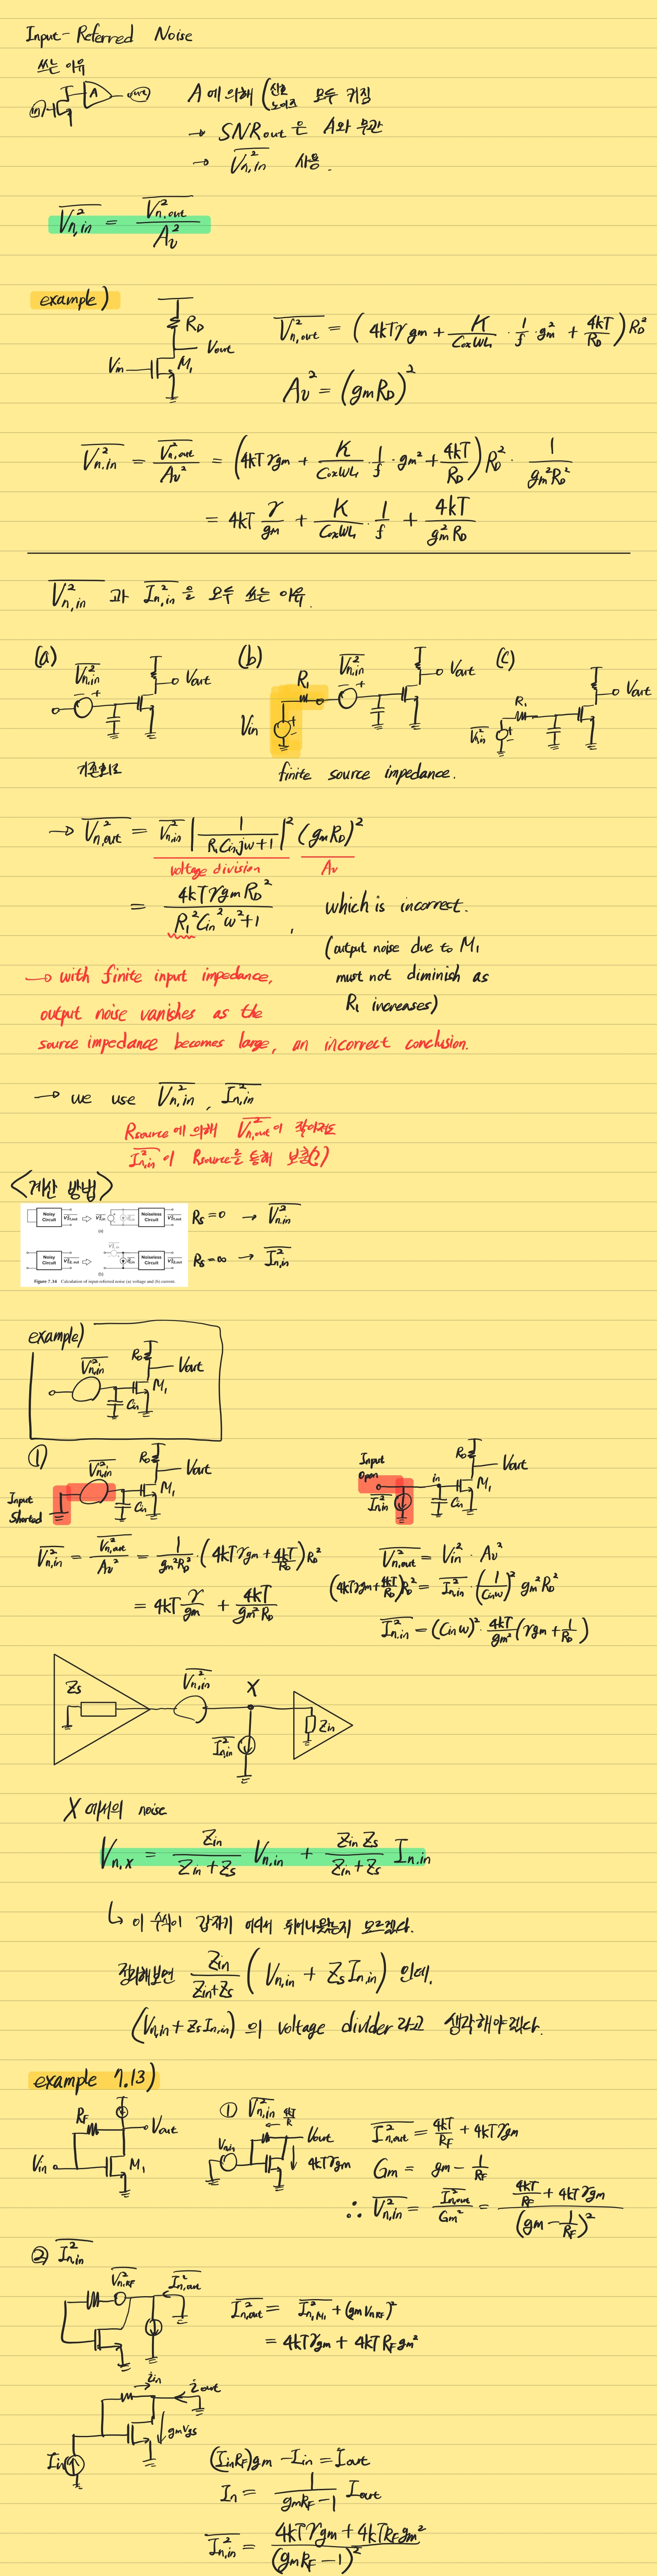 Input-Referred Noise
쓰는 이유
A
A에 의해 (신호 노이즈 모두 커짐
→ SNRout은 A와 무관
→ V²n,in 사용.
V²n,in = V²n,out / Av²
example)
RD
Vout
Vin
M1
V²n,out = (4kTγgm + K/(CoxWL) · 1/f · gm² + 4kT/RD) RD²
Av² = (gmRD)²
V²n,in = V²n,out / Av² = (4kTγgm + K/(CoxWL) · 1/f · gm² + 4kT/RD) RD² · 1/(gm²RD²)
= 4kT γ/gm + K/(CoxWL) · 1/f + 4kT/(gm²RD)
V²n,in 과 I²n,in 을 모두 쓰는 이유.
(a) V²n,in Vout
(b) R1 V²n,in Vout Vin
(c) R1 Vout
기존회로
finite source impedance.
→ V²n,out = V²n,in |1/(R1Cinjω+1)|² (gmRD)²
voltage division
Av
= 4kTγgmRD² / (R1²Cin²ω²+1), which is incorrect.
(output noise due to M1
must not diminish as
R1 increases)
→ with finite input impedance,
output noise vanishes as the
source impedance becomes large, an incorrect conclusion.
→ we use V²n,in, I²n,in
Rsource에 의해 V²n,out이 작아져도
I²n,in이 Rsource를 통해 보충(?)
<계산 방법>
Noisy Circuit
Noiseless Circuit
(a)
Noisy Circuit
Noiseless Circuit
(b)
Figure 7.34 Calculation of input-referred noise (a) voltage and (b) current.
Rs=0 → V²n,in
Rs=∞ → I²n,in
example)
RD
V²n,in
Vout
M1
Cin
①
Input Shorted
V²n,in
RD
Vout
M1
Cin
Input Open
I²n,in
in
RD
Vout
M1
Cin
V²n,in = V²n,out / Av² = 1/(gm²RD²) · (4kTγgm + 4kT/RD) RD²
= 4kT γ/gm + 4kT/(gm²RD)
V²n,out = V²in · Av²
(4kTγgm + 4kT/RD) RD² = I²n,in · (1/(Cinω))² gm²RD²
I²n,in = (Cinω)² · 4kT/gm² (γgm + 1/RD)
Zs
V²n,in
X
I²n,in
Zin
X에서의 noise
Vn,x = Zin/(Zin+Zs) Vn,in + ZinZs/(Zin+Zs) In,in
↳ 이 수식이 갑자기 어디서 튀어나왔는지 모르겠다.
정리해보면 Zin/(Zin+Zs) (Vn,in + ZsIn,in) 인데,
(Vn,in + ZsIn,in) 의 voltage divider라고 생각해야겠다.
example 7.13)
RF
Vout
Vin
M1
① V²n,in
Vn,in
4kT/R
Vout
4kTγgm
I²n,out = 4kT/RF + 4kTγgm
Gm = gm − 1/RF
∴ V²n,in = I²n,out / Gm² = (4kT/RF + 4kTγgm) / (gm − 1/RF)²
② I²n,in
V²n,RF
I²n,out
I²n,out = I²n,M1 + (gmVn,RF)²
= 4kTγgm + 4kTRFgm²
iin
iout
gmVgs
Iin
(IinRF)gm − Iin = Iout
In = 1/(gmRF−1) Iout
I²n,in = (4kTγgm + 4kTRFgm²) / (gmRF−1)²